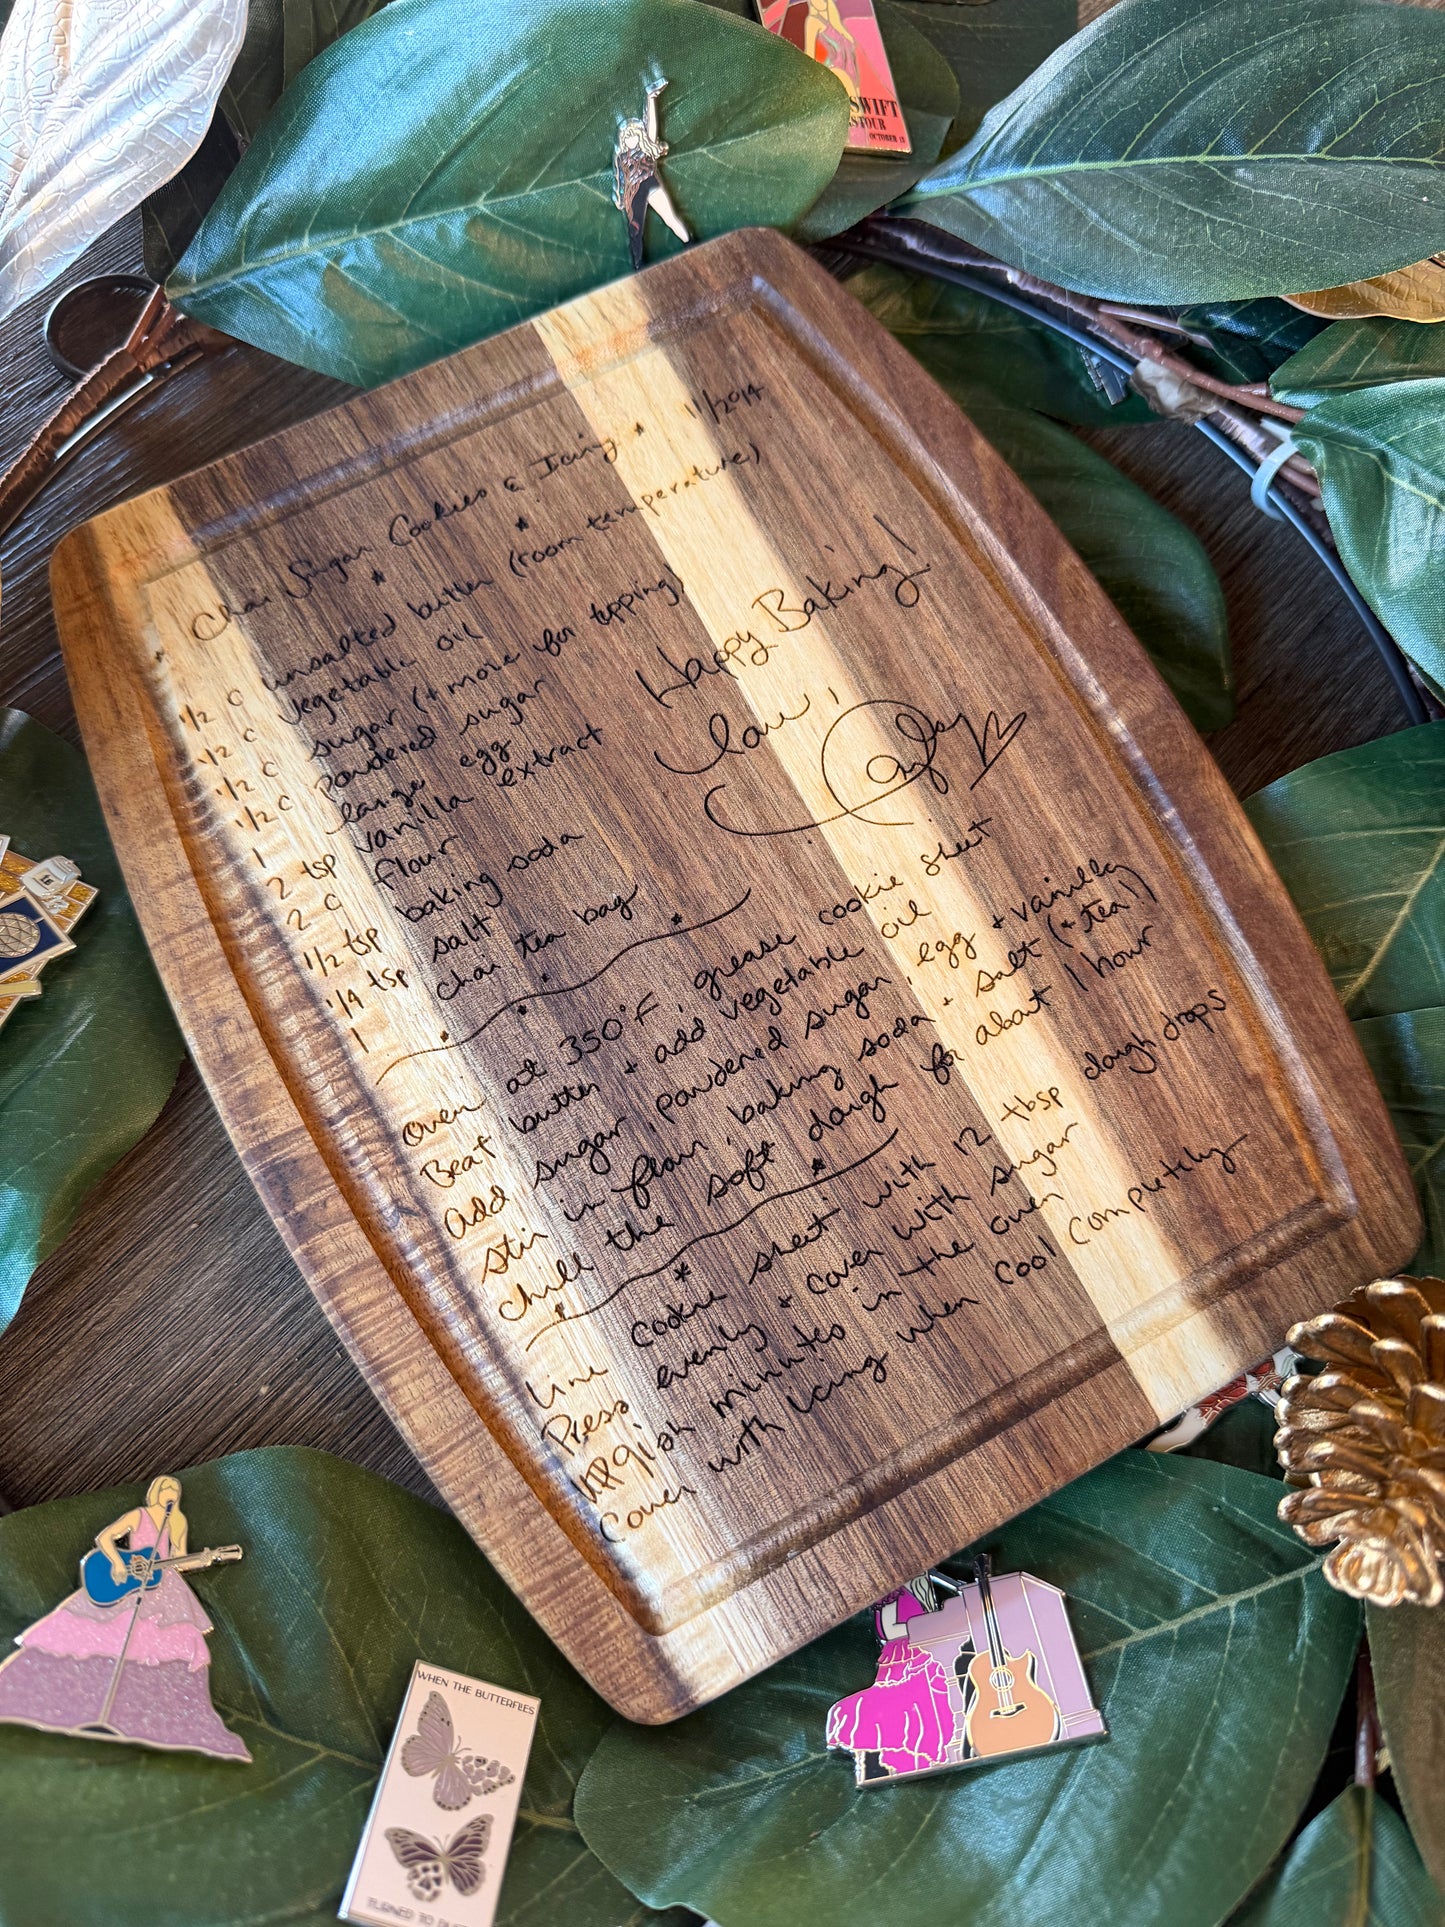 SWIFT
ERAS TOUR
OCTOBER 13
* Chai Sugar Cookies & Icing * 11/2014
1/2 C unsalted butter (room temperature)
1/2 C vegetable oil
1/2 C sugar (+ more for topping)
1/2 C powdered sugar
1 large egg
2 tsp vanilla extract
2 C flour
1/2 tsp baking soda
1/4 tsp salt
1 chai tea bag
Happy Baking!
Love,
Taylor
oven at 350°F, grease cookie sheet
Beat butter + add vegetable oil
add sugar, powdered sugar, egg + vanilla
stir in flour, baking soda + salt (+ tea!)
chill the soft dough for about 1 hour
Line cookie sheet with 12 tbsp dough drops
Press evenly + cover with sugar
9ish minutes in the oven
Cover with icing when cool completely
WHEN THE BUTTERFLIES
TURNED TO